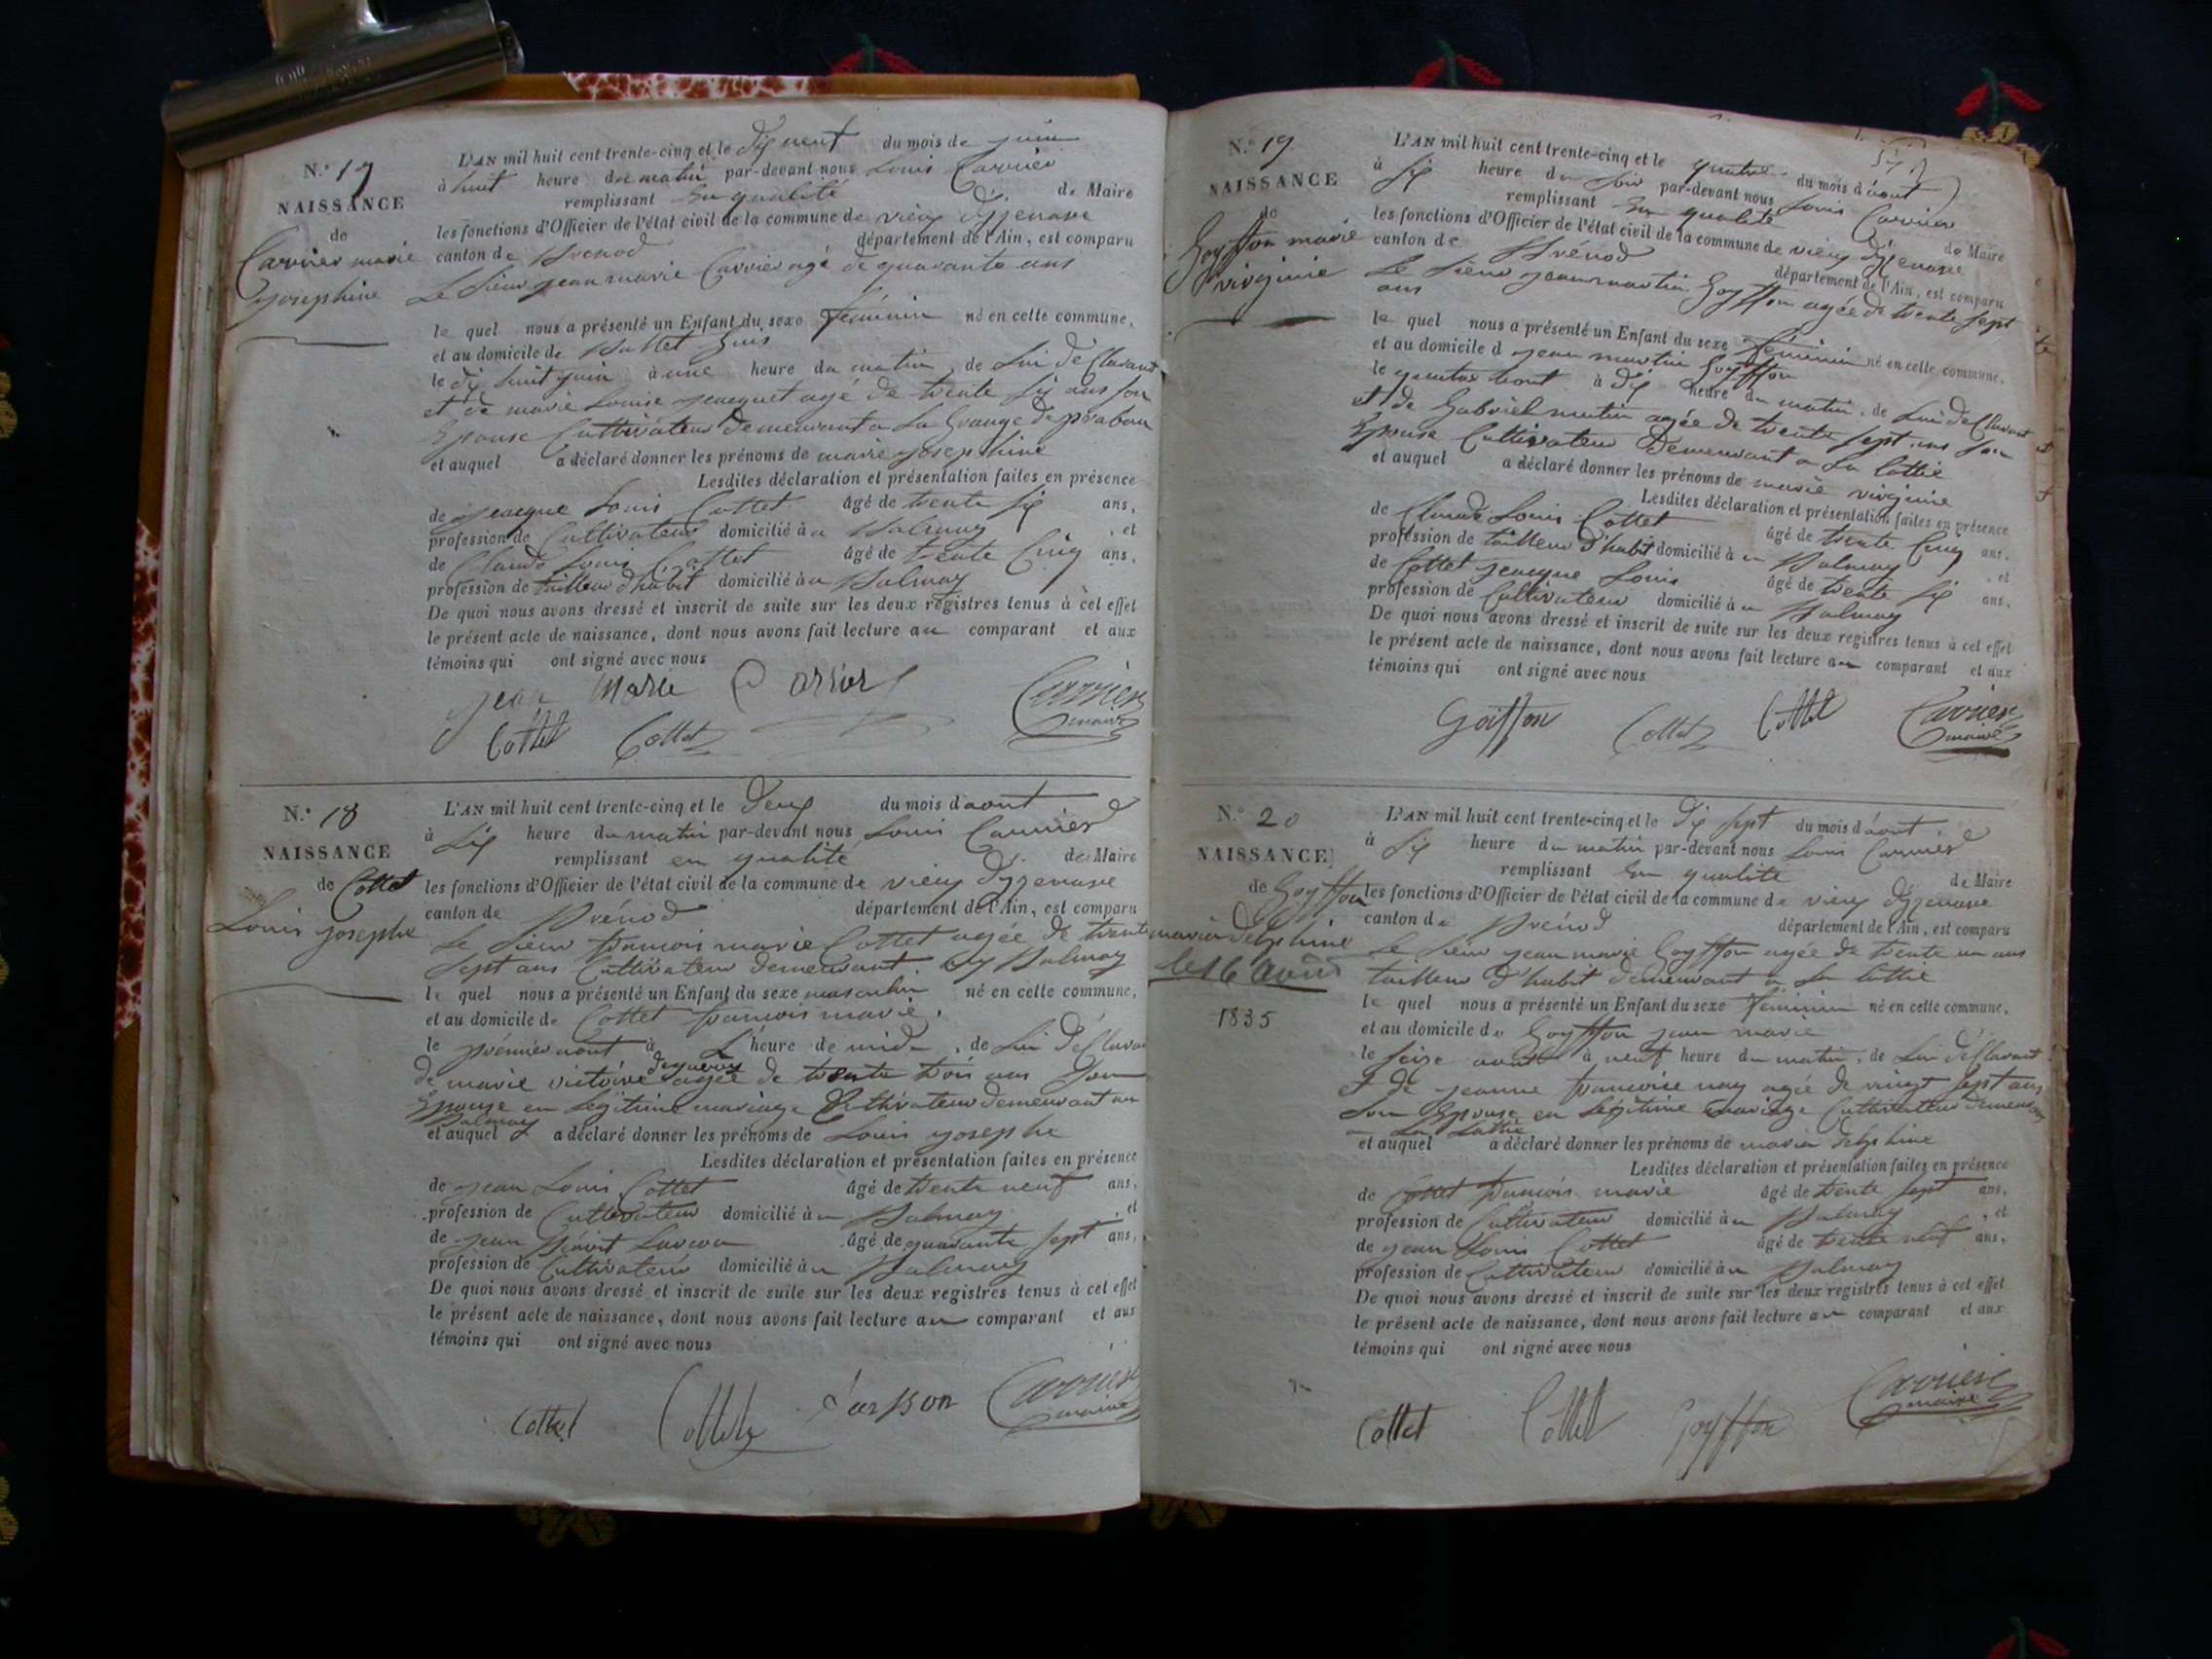 N.° 17
NAISSANCE
de
Carrier marie
josephine
L'AN mil huit cent trente-cinq et le dix neuf du mois de juin
à huit heure du matin par-devant nous Louis Carrier
remplissant En qualité de Maire
les fonctions d'Officier de l'état civil de la commune de vieux d'izenave
canton de Brénod département de l'Ain, est comparu
Le Sieur jean marie Carrier agé de quarante ans
le quel nous a présenté un Enfant du sexe féminin né en cette commune,
et au domicile de
le dix huit juin à une heure du matin, de Lui déClarant
et de marie Louise jacquet agé de trente six ans son
Epouse Cultivateur demeurant a La Grange de
et auquel a déclaré donner les prénoms de marie josephine
Lesdites déclaration et présentation faites en présence
de jeacque Louis Cottet âgé de trente six ans,
profession de Cultivateur domicilié à u Balmay , et
de Claude Louis Cottet âgé de trente Cinq ans,
profession de tailleur d'habit domicilié à u Balmay
De quoi nous avons dressé et inscrit de suite sur les deux registres tenus à cet effet
le présent acte de naissance, dont nous avons fait lecture au comparant et aux
témoins qui ont signé avec nous
jean Marie Carrier Carrier
maire
Cottet Cottet
N.° 18
NAISSANCE
de Cottet
Louis josephe
L'AN mil huit cent trente-cinq et le deux du mois d'aout
à six heure du matin par-devant nous Louis Carrier
remplissant en qualité de Maire
les fonctions d'Officier de l'état civil de la commune de vieux d'izenave
canton de Brénod département de l'Ain, est comparu
Le Sieur francois marie Cottet agée de trente
sept ans Cultivateur demeurant au Balmay
le quel nous a présenté un Enfant du sexe masculin né en cette commune,
et au domicile de Cottet francois marie.
le premier aout à L'heure de midi, de Lui déClara
de marie victoire agée de trente trois ans Son
Epouse en Légitime mariage Cultivateur demeurant au
Balmay
et auquel a déclaré donner les prénoms de Louis josephe
Lesdites déclaration et présentation faites en présence
de jean Louis Cottet âgé de trente neuf ans,
profession de Cultivateur domicilié à u Balmay , et
de jean Benoit âgé de quarante sept ans,
profession de Cultivateur domicilié à u Balmay
De quoi nous avons dressé et inscrit de suite sur les deux registres tenus à cet effet
le présent acte de naissance, dont nous avons fait lecture au comparant et aux
témoins qui ont signé avec nous
Cottet Cottet Carrier
maire
N.° 19
NAISSANCE
de
Goyffon marie
virginie
L'AN mil huit cent trente-cinq et le quatre du mois d'aout
à six heure du soir par-devant nous Louis Carrier
remplissant En qualité de Maire
les fonctions d'Officier de l'état civil de la commune de vieux d'izenave
canton de Brénod département de l'Ain, est comparu
Le Sieur jean martin Goyffon agée de trente sept
ans
le quel nous a présenté un Enfant du sexe féminin né en cette commune,
et au domicile d jean martin Goyffon
le quatre aout à dix heure du matin, de Lui déClarant
et de Gabriel mutin agée de trente sept ans son
Epouse Cultivateur Demeurant a La Cottie
et auquel a déclaré donner les prénoms de marie virginie
Lesdites déclaration et présentation faites en présence
de Claude Louis Cottet âgé de trente Cinq ans,
profession de tailleur d'habit domicilié à u Balmay , et
de Cottet jeacque Louis âgé de trente six ans,
profession de Cultivateur domicilié à u Balmay
De quoi nous avons dressé et inscrit de suite sur les deux registres tenus à cet effet
le présent acte de naissance, dont nous avons fait lecture au comparant et aux
témoins qui ont signé avec nous
Goiffon Cottet Cottet Carrier
maire
N.° 20
NAISSANCE
de Goyffon
maria delphine
le 16 août
1835
L'AN mil huit cent trente-cinq et le dix sept du mois d'aout
à six heure du matin par-devant nous Louis Carrier
remplissant En qualité de Maire
les fonctions d'Officier de l'état civil de la commune de vieux d'izenave
canton de Brénod département de l'Ain, est comparu
Le Sieur jean marie Goyffon agée de trente un ans
tailleur d'habit demeurant a La Cottie
le quel nous a présenté un Enfant du sexe féminin né en cette commune,
et au domicile de Goyffon jean marie
le seize aout à neuf heure du matin, de Lui déClarant
Et de jeanne francoise nay agée de vingt sept ans
Son Epouse en Légitime mariage Cultivateur demeurant
a La Cottie
et auquel a déclaré donner les prénoms de maria delphine
Lesdites déclaration et présentation faites en présence
de Cottet francois marie âgé de trente sept ans,
profession de Cultivateur domicilié à u Balmay , et
de jean Louis Cottet âgé de trente neuf ans,
profession de Cultivateur domicilié à u Balmay
De quoi nous avons dressé et inscrit de suite sur les deux registres tenus à cet effet
le présent acte de naissance, dont nous avons fait lecture au comparant et aux
témoins qui ont signé avec nous
Cottet Cottet Goyffon Carrier
maire